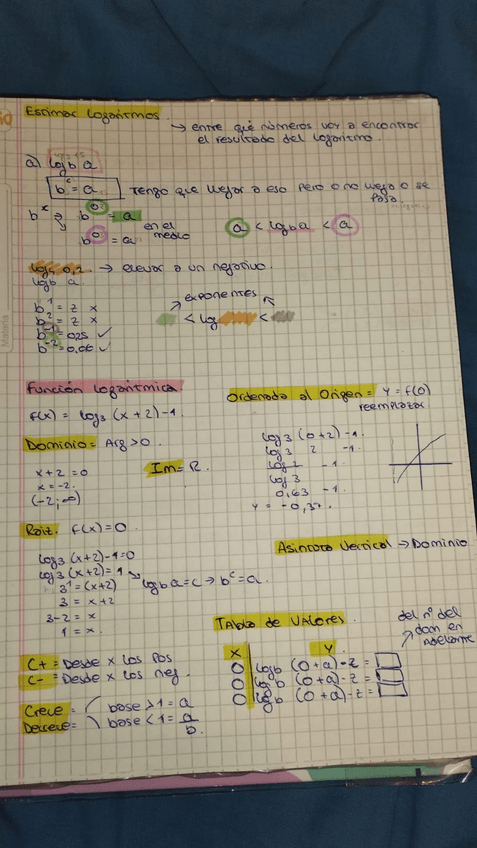 Estimar Logaritmos
→ entre qué números voy a encontrar
el resultado del logaritmo.
a) log b a
b^c = a Tengo que llegar a eso pero o no llego o se
pasa.
b^x ⇒ b = a
en el
medio
b = a
a < log b a < a
log 0,2 → elevar a un negativo.
log b a
→ exponentes
b^1 = 2 x
b^2 = 2 x
b^-1 = 0,25 ✓
b^-2 = 0,06 ✓
< log <
Función Logarítmica
f(x) = log3 (x+2)-1.
Dominio = Arg > 0.
x+2 = 0
x = -2.
(-2; ∞)
Im = R.
Ordenada al Origen = Y = f(0)
reemplazar
log3 (0+2)-1
log3 2 -1
log 2 -1
log 3
0,63 -1.
Y = -0,37.
Raiz. f(x) = 0
log3 (x+2)-1 = 0
log3 (x+2) = 1
3^1 = (x+2)
3 = x+2
3-2 = x
1 = x.
log b a = c → b^c = a.
Asintota Vertical → Dominio
C+ = Desde x los pos
C- = Desde x los neg.
Crece = base > 1 = a
Decrece = base < 1 = a/b.
Tabla de Valores.
del nº del
dom en
adelante
X Y
0 log b (0+a)-2 =
0 log b (0+a)-2 =
0 log b (0+a)-2 =